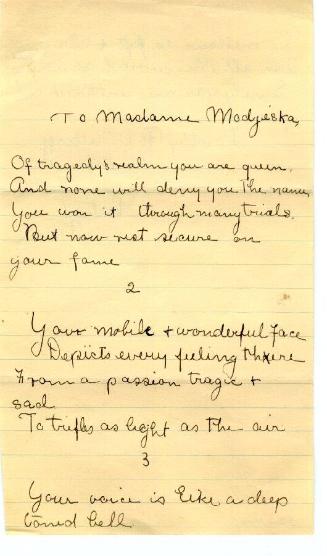 To Madame Modjeska,
Of tragedy's realm you are queen.
And none will deny you the name,
You won it through many trials.
But now rest secure on
your fame
2
Your mobile + wonderful face
Depicts every feeling there
From a passion tragic +
sad
To trifles as light as the air
3
Your voice is like a deep
toned bell